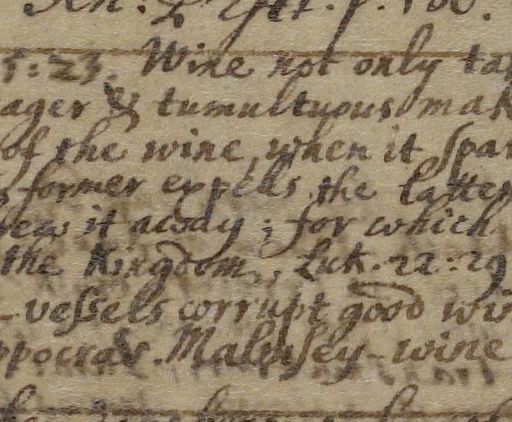 5:23. Wine not only ta
ager & tumultuous mak
of the wine, when it spar
former expells the latte
it away; for which
the Kingdom, Luk. 22:29
-vessels corrupt good wi
ppocras. Malmsey-wine